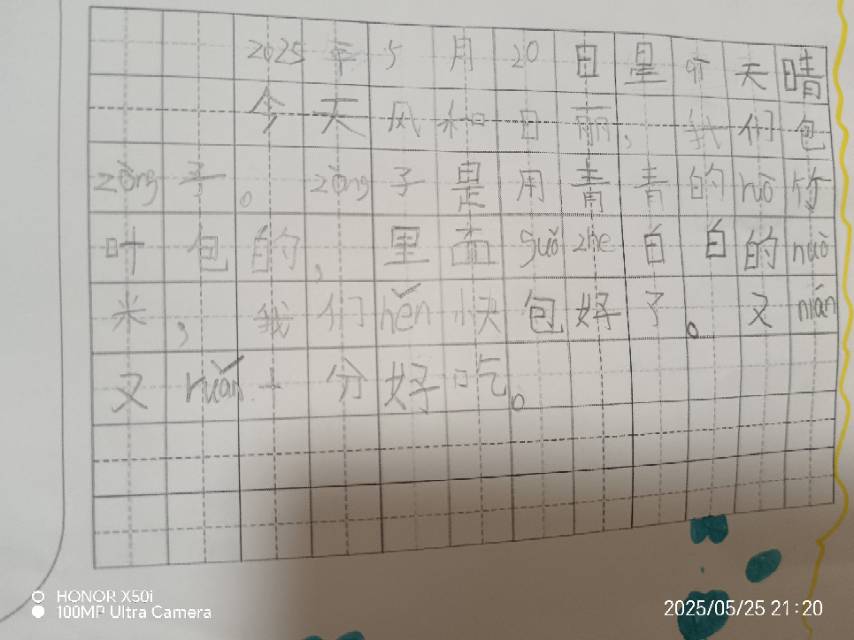 2025年5月20日星 天晴
今天风和日丽，我们包
zòng子。zòng子是用青青的 竹
叶包的，里面guǒ zhe白白的nuò
米，我们hěn快包好了。又nián
又ruǎn十分好吃。
HONOR X50i
100MP Ultra Camera
2025/05/25 21:20